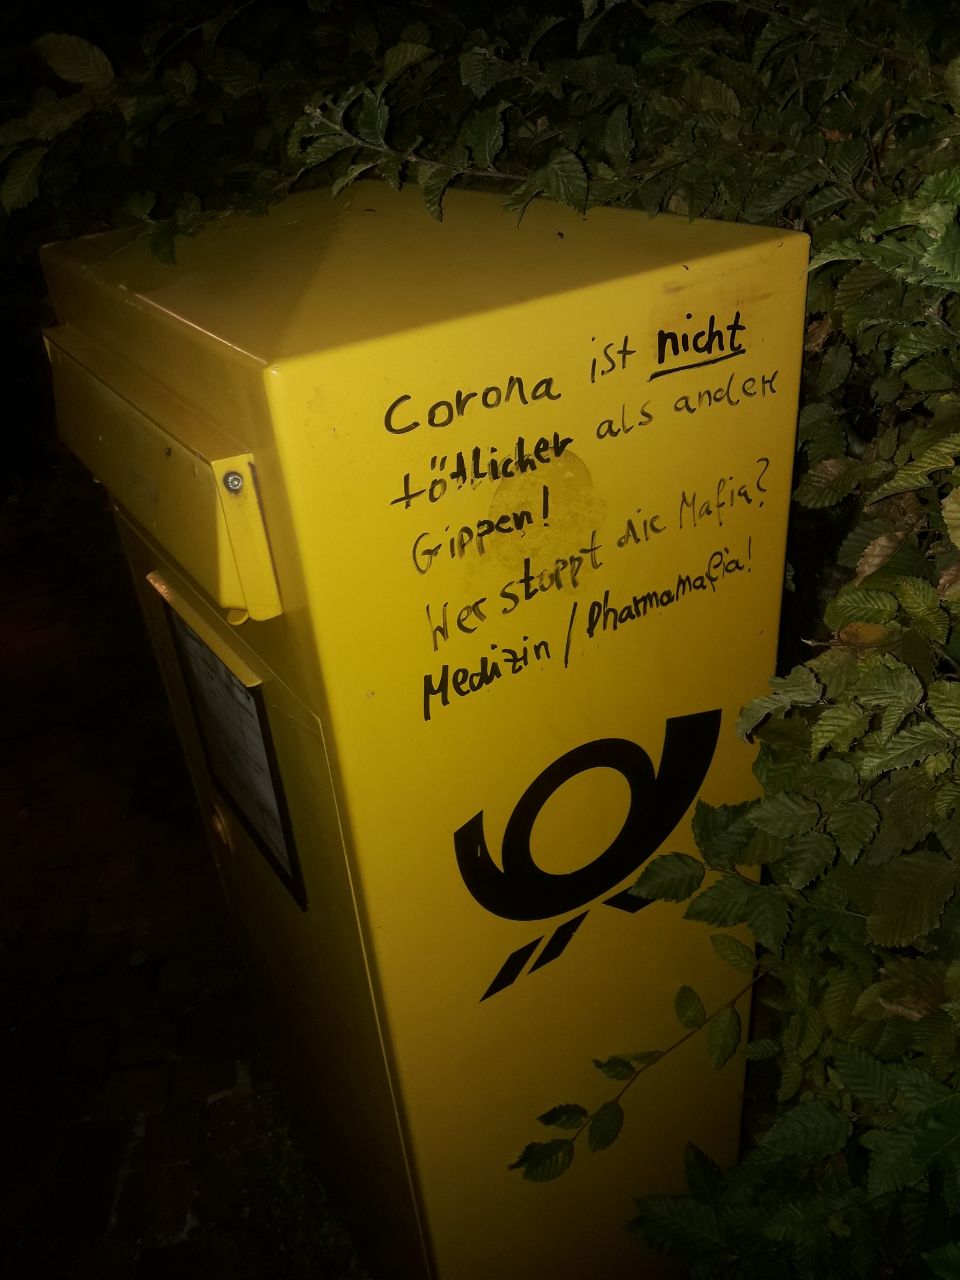 Corona ist nicht
tötlicher als andere
Gippen!
Wer stoppt die Mafia?
Medizin / Pharmamafia!